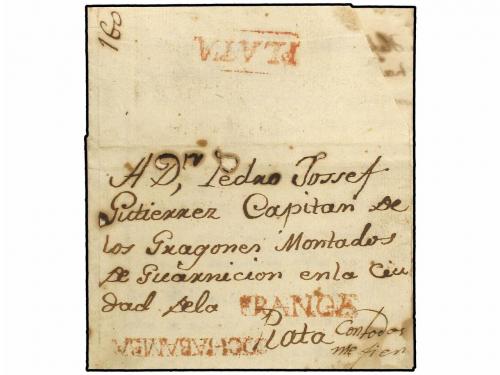 160
PLATA
A Dn, Pedro Jossef
Gutierrez Capitan de
los Dragones Montados
de Guarnicion en la Ciu
dad de la FRANCA
Plata
COCHABAMBA